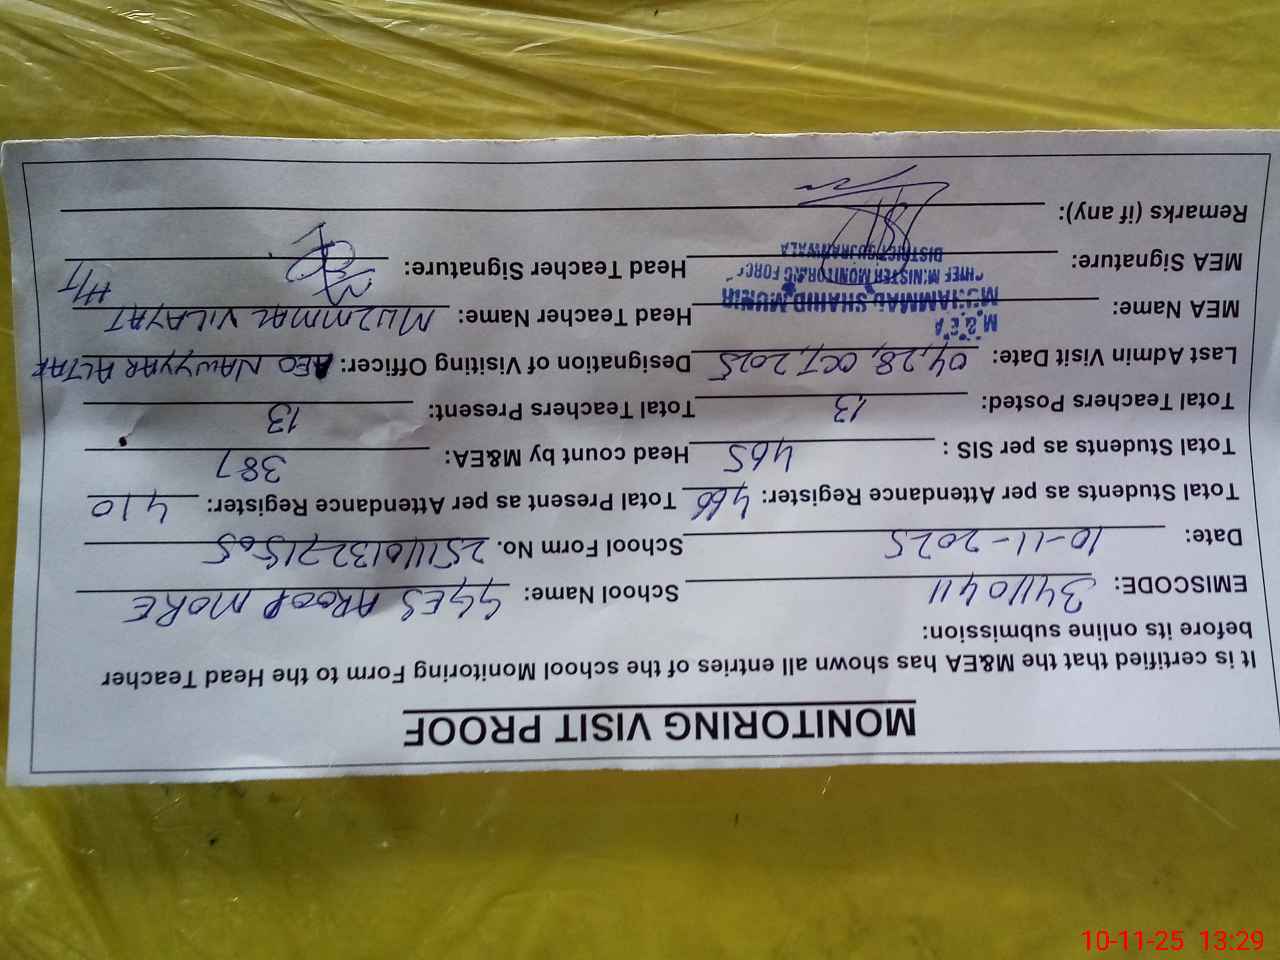 MONITORING VISIT PROOF
It is certified that the M&EA has shown all entries of the school Monitoring Form to the Head Teacher
before its online submission:
EMISCODE: 34110411 School Name: GGES AROOP MORE
Date: 10-11-2025 School Form No.
Total Students as per Attendance Register: 466 Total Present as per Attendance Register: 410
Total Students as per SIS : 465 Head count by M&EA: 387
Total Teachers Posted: 13 Total Teachers Present: 13
Last Admin Visit Date: 04,28, OCT, 2025 Designation of Visiting Officer: AEO NAWYYAR ALTAF
MEA Name: M & E A Head Teacher Name: MUZMMAL VILAYAT
MUHAMMAD SHAHID MUNIR H/T
CHIEF MINISTER MONITORING FORCE
DISTRICT GUJRANWALA
MEA Signature: Head Teacher Signature:
Remarks (if any):
10-11-25 13:29